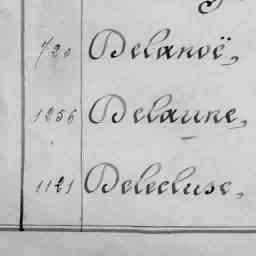 720 Delanoë,
1256 Delaune,
1121 Delecluse,